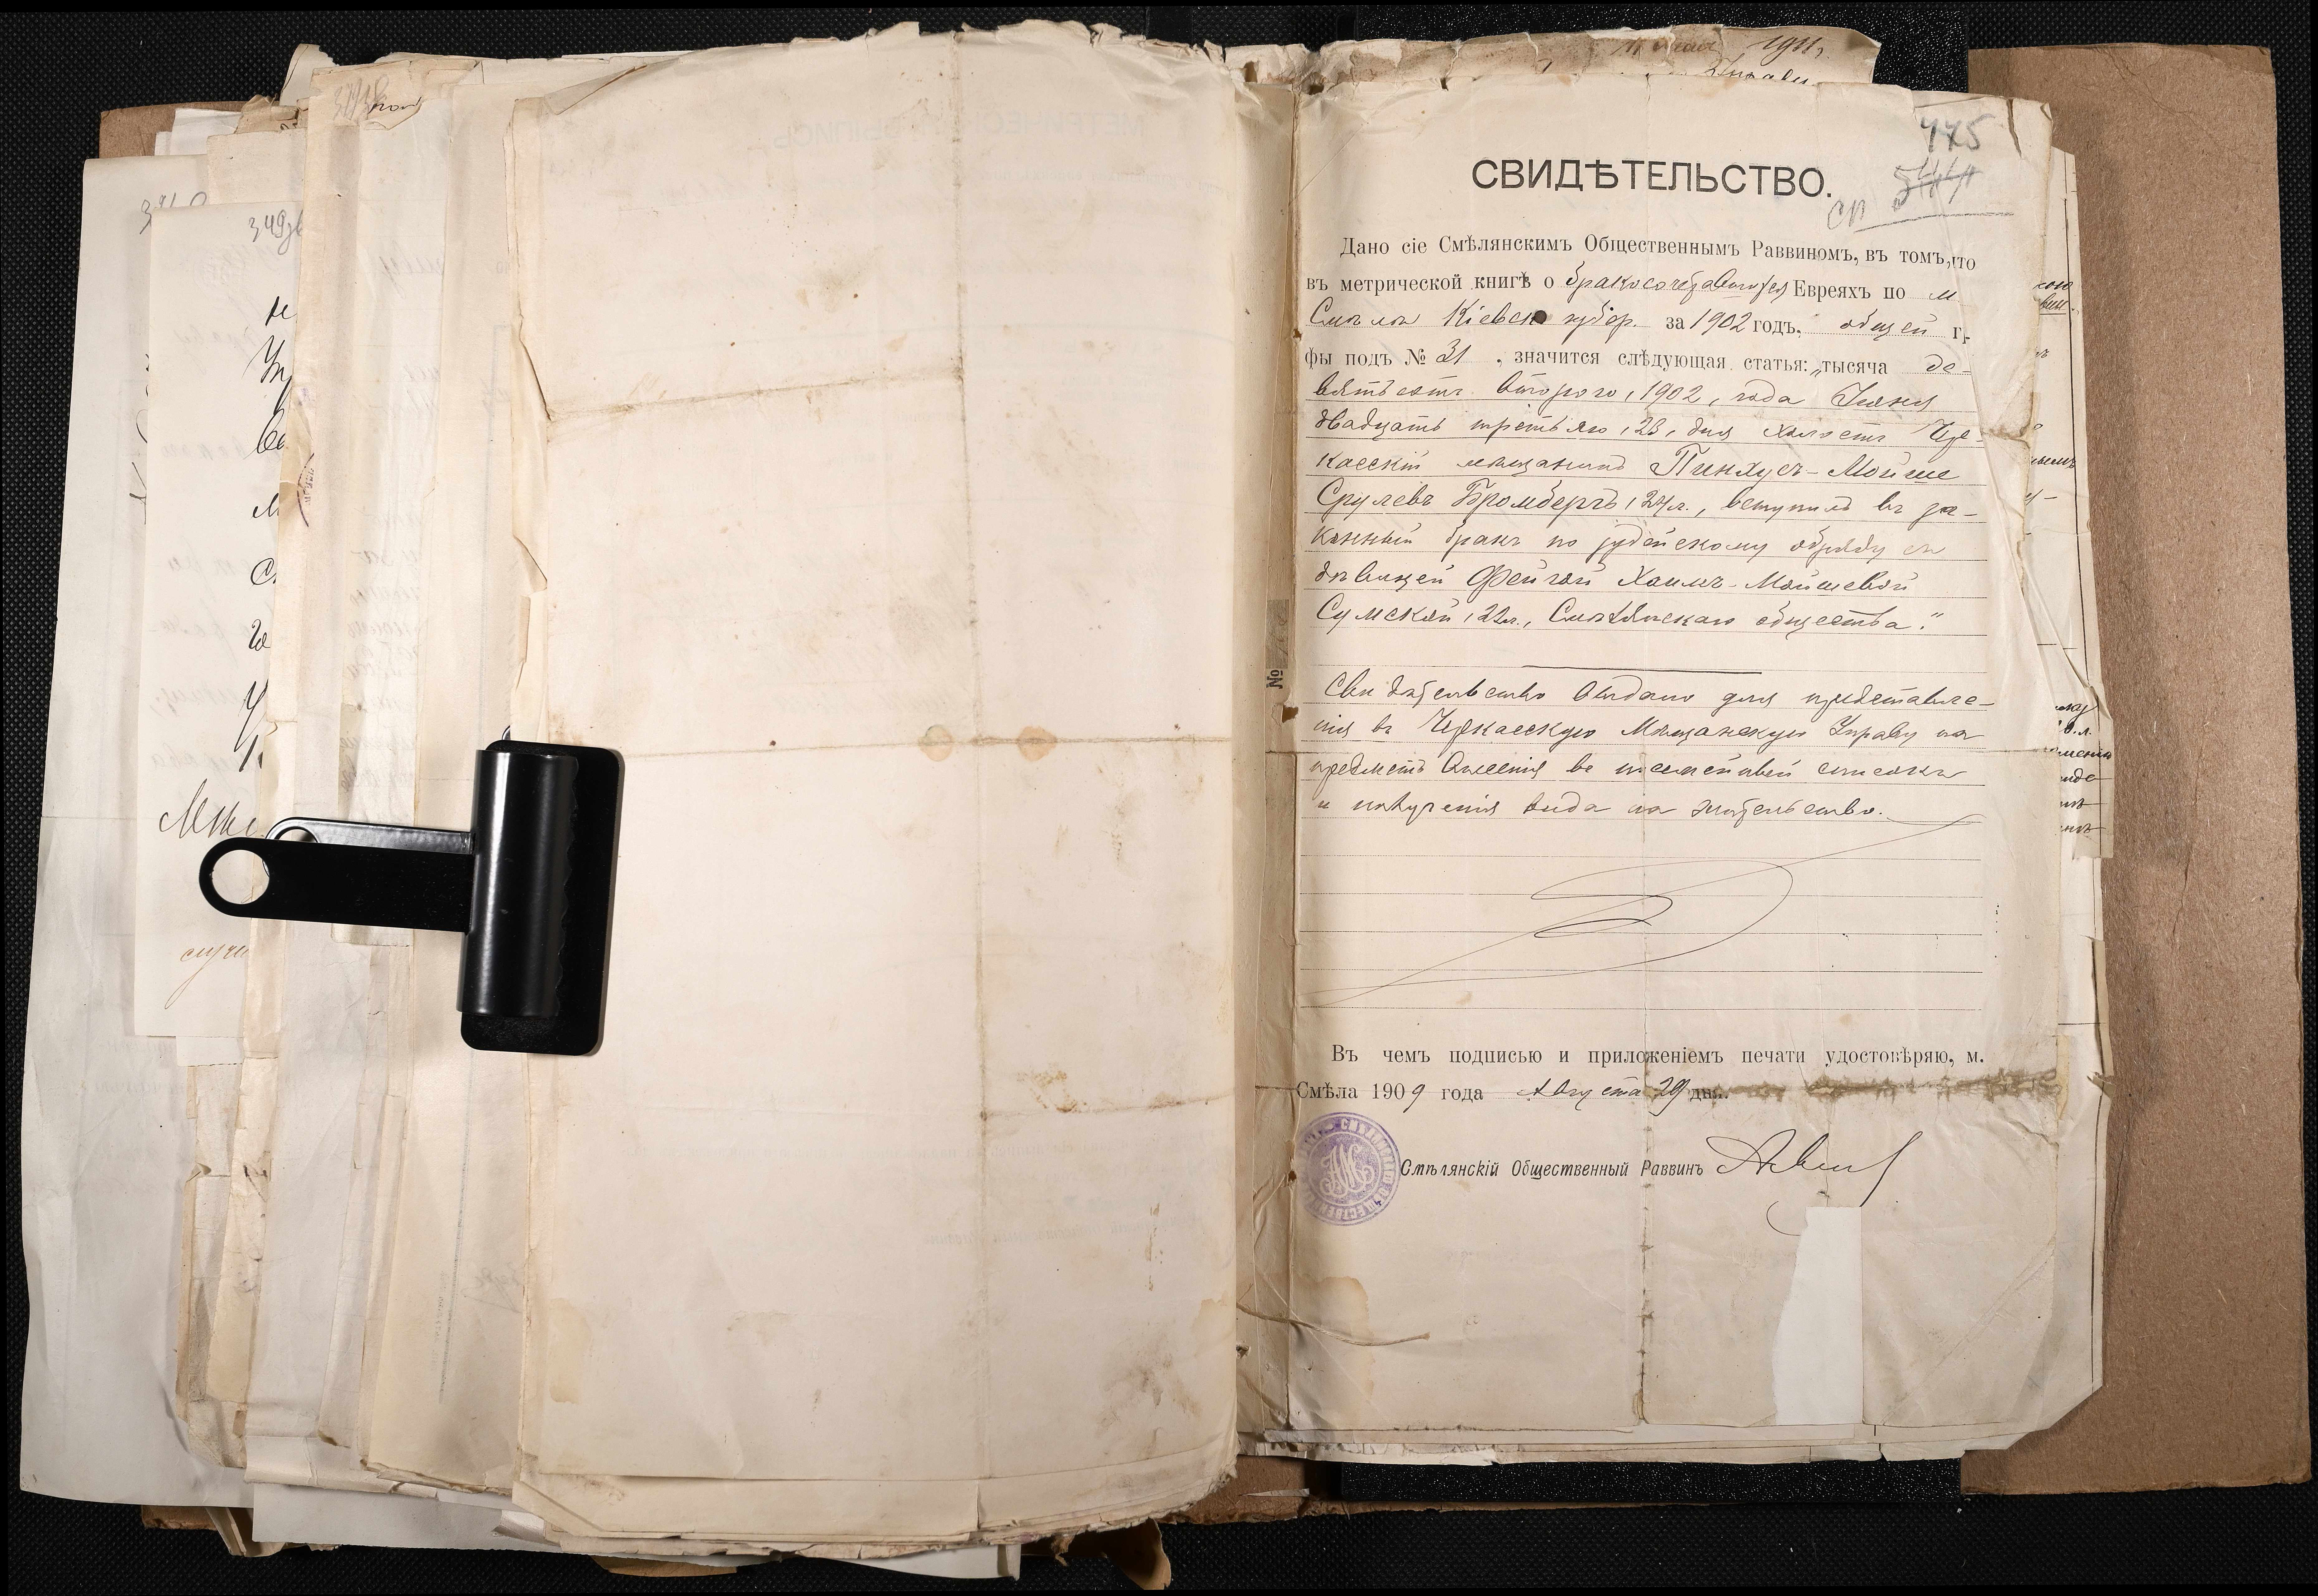 445
СВИДѢТЕЛЬСТВО.
Дано сіе Смѣлянскимъ Общественнымъ Раввиномъ, въ томъ, что
въ метрической книгѣ о бракосочетавшихся Евреяхъ по м
Смѣла Кіевск губер. за 1902 годъ, общей г.
фы подъ № 31, значится слѣдующая статья: „тысяча де-
вятьсотъ второго, 1902, года Іюня
двадцать третьяго, 23, дня холостъ Чер-
касскій мѣщанинъ Пинхусъ-Мойше
Срулевъ Бромбергъ, 24 л., вступилъ въ за-
конный бракъ по іудейскому обряду съ
дѣвицей Фейгой Хаимъ-Мойшевой
Сумской, 22 л., Смѣлянскаго общества."
Свидѣтельство выдано для представле-
нія въ Черкасскую Мѣщанскую Управу на
предметъ внесенія въ посемейный списокъ
и полученія вида на жительство.
Въ чемъ подписью и приложеніемъ печати удостовѣряю, м.
Смѣла 1909 года Августа 29 дня.
Смѣлянскій Общественный Раввинъ